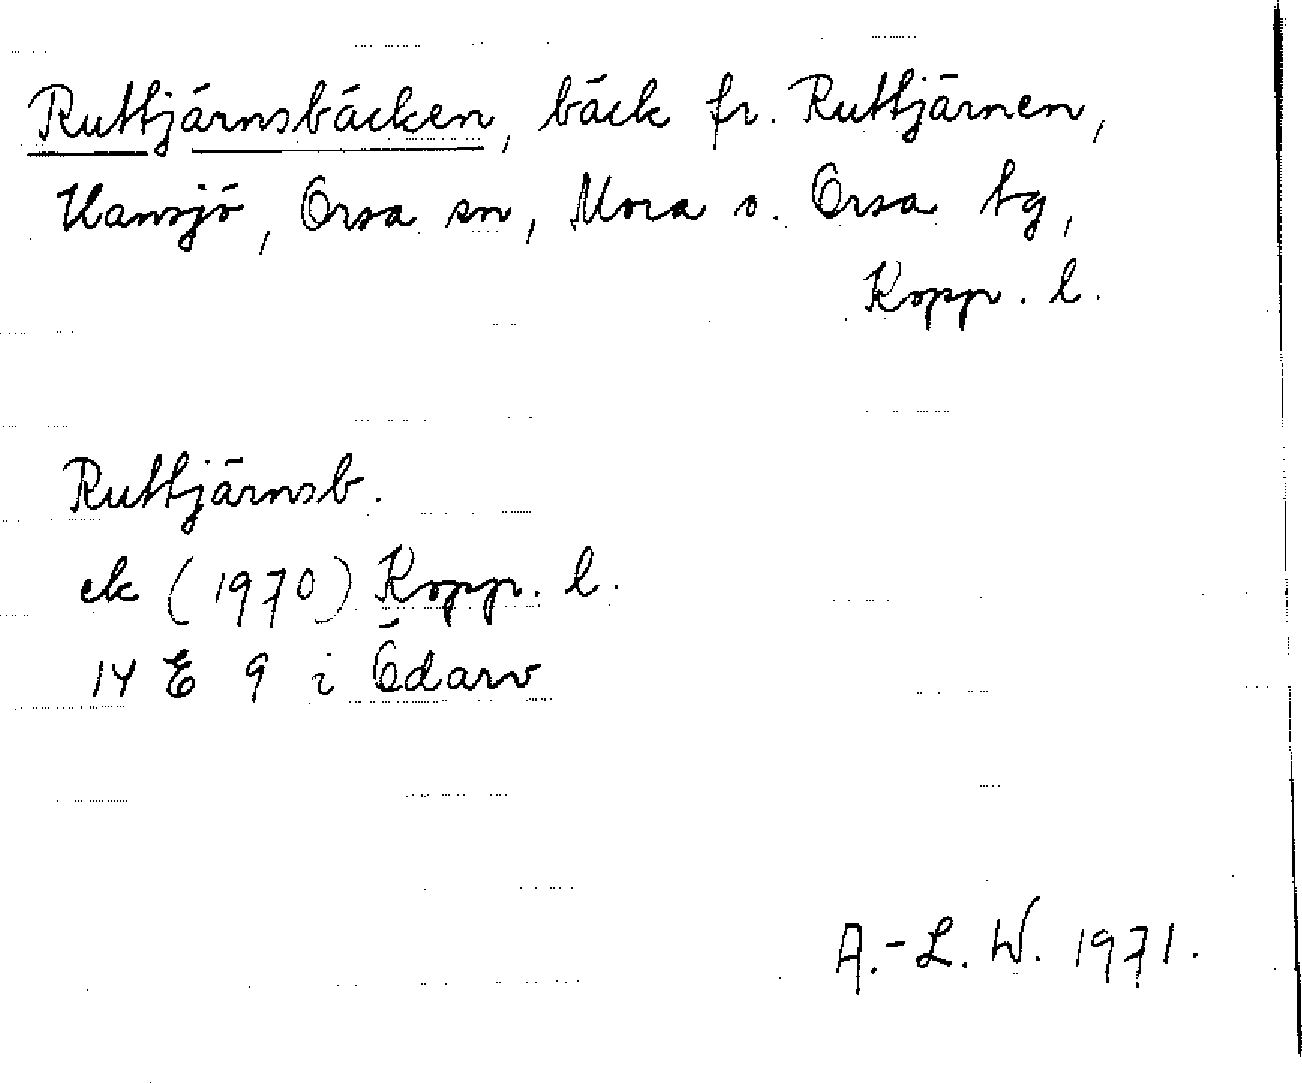 Ruttjärnsbäcken, bäck fr. Ruttjärnen,
Hansjö, Orsa sn, Mora o. Orsa tg,
Kopp. l.
Ruttjärnsb.
ek (1970) Kopp. l.
14 E 9 i Ödarv
A.-L. W. 1971.